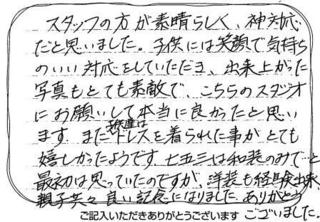 スタッフの方が素晴らしく、神対応
だと思いました。子供には笑顔で気持ち
のいい対応をしていただき、出来上がった
写真もとても素敵で、こちらのスタジオ
にお願いして本当に良かったと思い
ます。また ドレスを着られた事がとても
嬉しかったようです。七五三は和装のみで…と
最初は思っていたのですが、洋装も経験出来、
親子共々良い記念になりました。ありがとう
ございました。
ご記入いただきありがとうございます